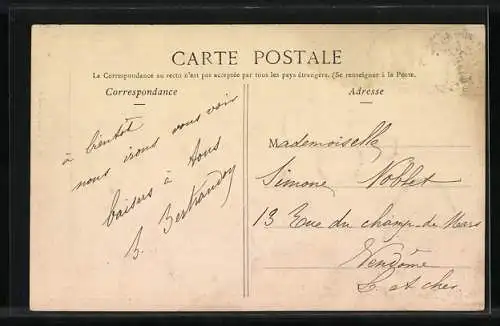 CARTE POSTALE
La Correspondance au recto n'est pas acceptée par tous les pays étrangers. (Se renseigner à la Poste.
Correspondance
à bientôt
nous irons vous voir
baisers à tous
B. Bertrandoy
Adresse
Mademoiselle
Simone Noblet
13 Rue du champ-de Mars
Vendôme
L. et cher